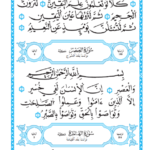 كَلَّا لَوْ تَعْلَمُونَ عِلْمَ الْيَقِينِ ۝ لَتَرَوُنَّ
الْجَحِيمَ ۝ ثُمَّ لَتَرَوُنَّهَا عَيْنَ الْيَقِينِ ۝
ثُمَّ لَتُسْأَلُنَّ يَوْمَئِذٍ عَنِ النَّعِيمِ ۝
سُورَةُ الْعَصْرِ
بِسْمِ اللَّهِ الرَّحْمَٰنِ الرَّحِيمِ
وَالْعَصْرِ ۝ إِنَّ الْإِنسَانَ لَفِي خُسْرٍ ۝
إِلَّا الَّذِينَ آمَنُوا وَعَمِلُوا الصَّالِحَاتِ
وَتَوَاصَوْا بِالْحَقِّ وَتَوَاصَوْا بِالصَّبْرِ ۝
سُورَةُ الْهُمَزَةِ